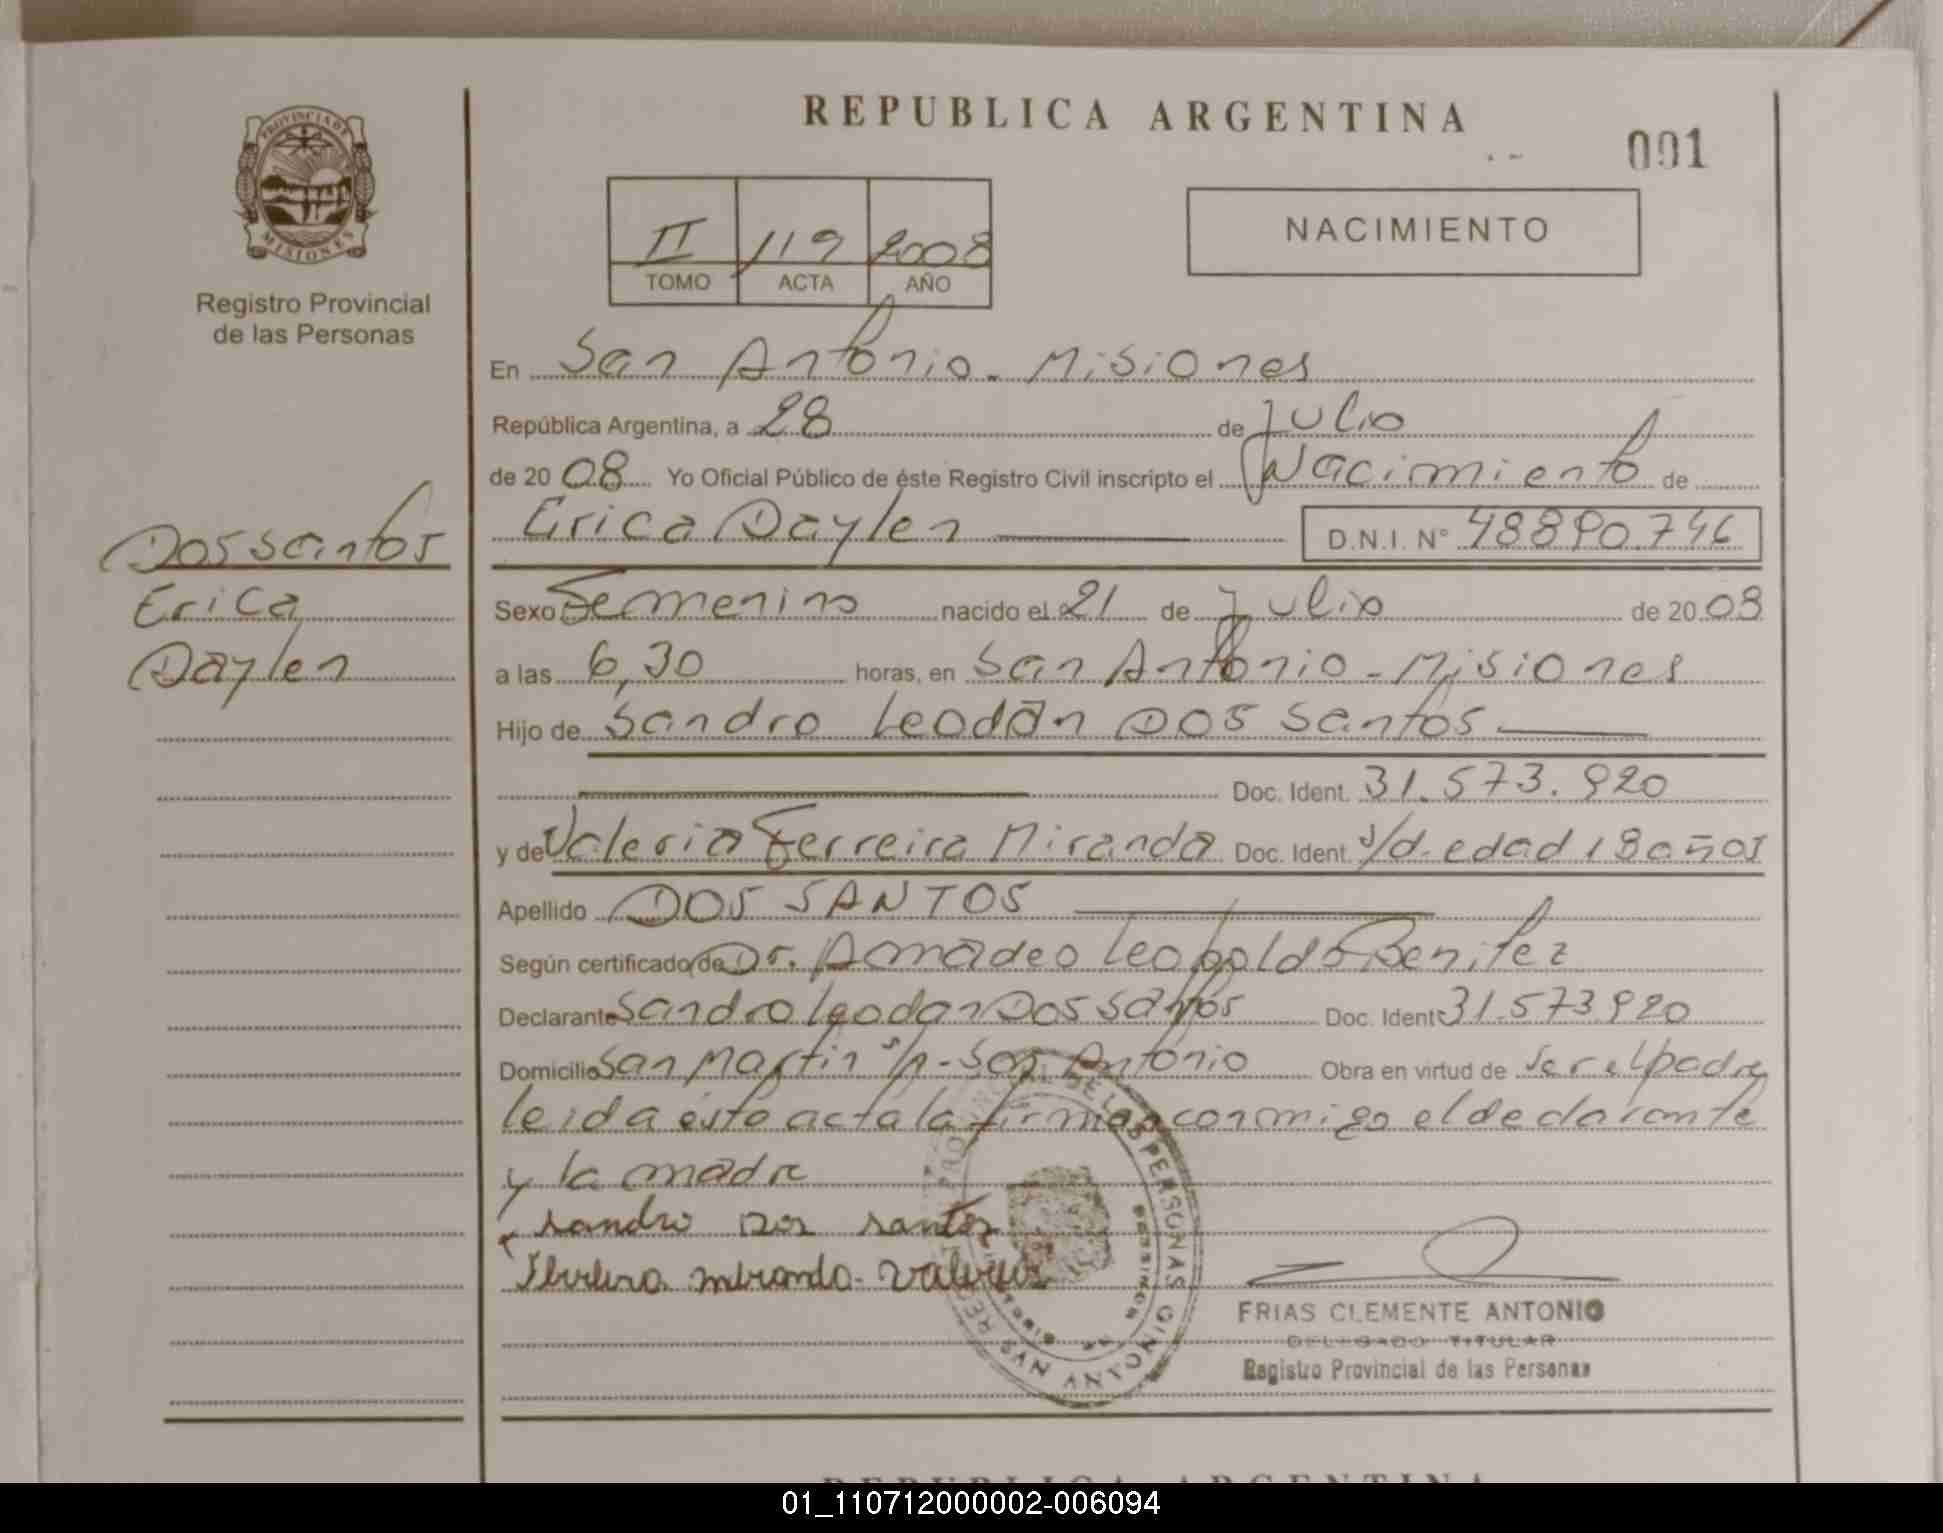 REPUBLICA ARGENTINA
001
PROVINCIA DE
MISIONES
Registro Provincial
de las Personas
II 119 2008
TOMO ACTA AÑO
NACIMIENTO
En San Antonio - Misiones
República Argentina, a 28 de Julio
de 20 08 Yo Oficial Público de éste Registro Civil inscripto el Nacimiento de
Erica Daylen D.N.I. N° 48890.746
Dos santos
Erica
Daylen
Sexo Femenino nacido el 21 de Julio de 20 08
a las 6,30 horas, en San Antonio - Misiones
Hijo de Sandro Leodán Dos Santos
Doc. Ident. 31.573.920
y de Valeria Ferreira Miranda Doc. Ident s/d. edad 18 años
Apellido DOS SANTOS
Según certificado de Dr. Amadeo Leopoldo Benitez
Declarante Sandro Leodan Dos Santos Doc. Ident 31.573920
Domicilio San Martin s/n - San Antonio Obra en virtud de ser el padre
leida esta acta la firman conmigo el declarante
y la madre
sandro Dos santos
Ferreira miranda valeria
FRIAS CLEMENTE ANTONIO
DELEGADO TITULAR
Registro Provincial de las Personas
REPUBLICA ARGENTINA
01_110712000002-006094